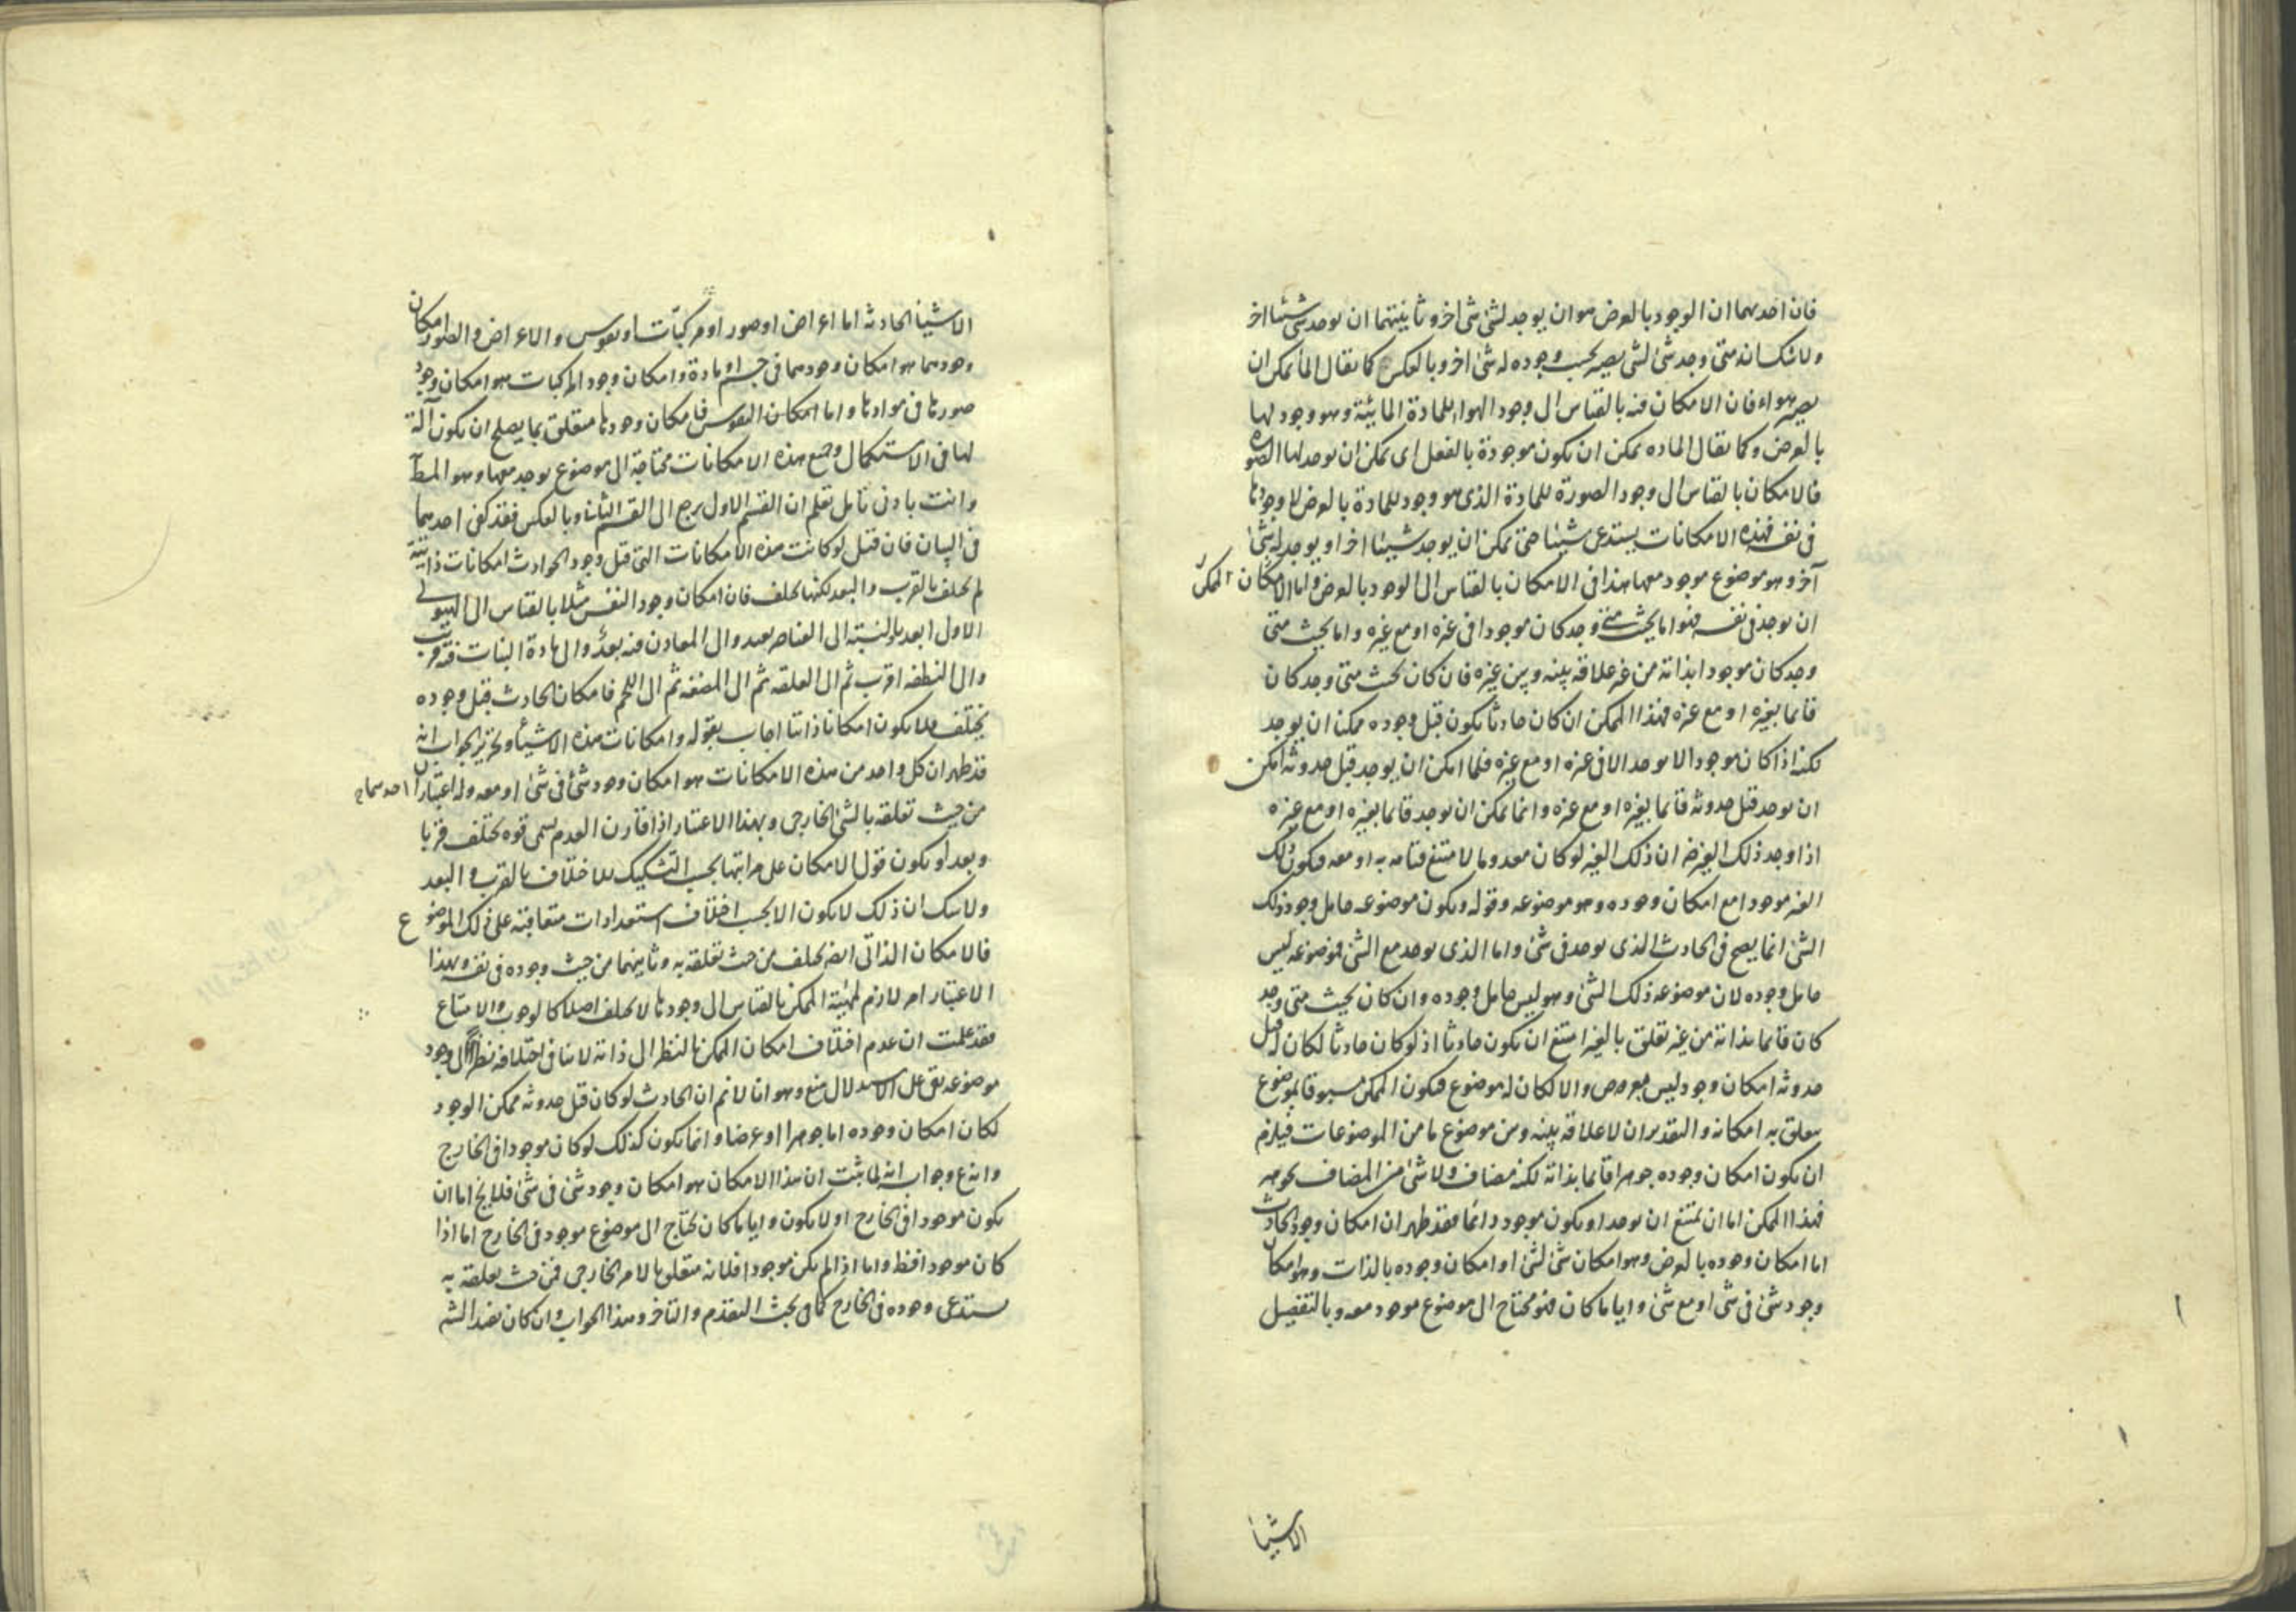 فان احديهما ان الوجود بالعرض هو ان يوجد لشئ شئ اخر وثانيتهما ان يوجد شئ شيئا اخر
ولا شك انه متى وجد شئ لشئ يصير بحسب وجوده له شئ اخر وبالعكس كما يقال الماء يمكن ان
يصير هواء فان الامكان فيه بالقياس الى وجود الهواء للمادة المائية وهو وجود لها
بالعرض وكما يقال المادة يمكن ان يكون موجودة بالفعل اى يمكن ان يوجد لها الصورة
فالامكان بالقياس الى وجود الصورة للمادة الذى هو وجود للمادة بالعرض لا وجودها
فى نفسه فهذه الامكانات يستدعى شيئا حتى يمكن ان يوجد شيئا اخر او يوجد له شئ
آخر وهو موضوع موجود معها هذا فى الامكان بالقياس الى الوجود بالعرض واما الامكان الممكن
ان يوجد فى نفسه فهو اما بحيث متى وجد كان موجودا فى غيره او مع غيره واما بحيث متى
وجد كان موجودا بذاته من غير علاقة بينه وبين غيره فان كان بحيث متى وجد كان
قائما بغيره او مع غيره فهذا الممكن ان كان حادثا يكون قبل وجوده ممكنا ان يوجد
لكنه اذا كان موجودا لا يوجد الا فى غيره او مع غيره فلما امكن ان يوجد قبل حدوثه امكن
ان يوجد قبل حدوثه قائما بغيره او مع غيره وانما يمكن ان يوجد قائما بغيره او مع غيره
اذا وجد ذلك الغير ضرورة ان ذلك الغير لو كان معدوما لامتنع قيامه به او معه فيكون ذلك
الغير موجودا مع امكان وجوده وهو موضوعه وقوله ويكون موضوعه حامل وجود ذلك
الشئ انما يصح فى الحادث الذى يوجد فى شئ واما الذى يوجد مع الشئ فموضوعه ليس
حامل وجوده لان موضوعه ذلك الشئ وهو ليس حامل وجوده وان كان بحيث متى وجد
كان قائما بذاته من غير تعلق بالغير امتنع ان يكون حادثا اذ لو كان حادثا لكان له قبل
حدوثه امكان وجود ليس بعرض والا لكان له موضوع فيكون الممكن مسبوقا بموضوع
يتعلق به امكانه والتقدير ان لا علاقة بينه وبين موضوع ما من الموضوعات فيلزم
ان يكون امكان وجوده جوهرا قائما بذاته لكنه مضاف ولا شئ من المضاف بجوهر
فهذا الممكن اما ان يمتنع ان يوجد او يكون موجودا دائما فقد ظهر ان امكان وجود الحادث
اما امكان وجوده بالعرض وهو امكان شئ لشئ او امكان وجوده بالذات وهو امكان
وجود شئ فى شئ او مع شئ وايا ما كان فهو محتاج الى موضوع موجود معه وبالتفصيل
الاشيا
الاشيا الحادثة اما اعراض او صور او مركبات او نفوس والاعراض والصور امكان
وجودهما هو امكان وجودهما فى جسم او مادة وامكان وجود المركبات هو امكان وجود
صورها فى موادها واما امكان النفوس فامكان وجودها متعلق بما يصلح ان يكون آلة
لها فى الاستكمال وجميع هذه الامكانات محتاجة الى موضوع يوجد معها وهو المط
وانت بادنى تامل تعلم ان القسم الاول يرجع الى القسم الثانى وبالعكس فقد كفى احديهما
فى البيان فان قيل لو كانت هذه الامكانات التى قبل وجود الحوادث امكانات ذاتية
لم تختلف بالقرب والبعد لكنها تختلف فان امكان وجود النفس مثلا بالقياس الى الهيولى
الاولى ابعد وبالنسبة الى العناصر بعيد والى المعادن فيه بعد والى مادة النبات فيه قرب
والى النطفة اقرب ثم الى العلقة ثم الى المضغة ثم الى اللحم فامكان الحادث قبل وجوده
يختلف فلا يكون امكانا ذاتيا اجاب بقوله وامكانات هذه الاشياء وتحرير الجواب انه
قد ظهر ان كل واحد من هذه الامكانات هو امكان وجود شئ فى شئ او معه وله اعتباران احدهما
من حيث تعلقه بالشئ الخارجى وبهذا الاعتبار اذا قارن العدم يسمى قوة تختلف قربا
وبعدا ويكون قول الامكان على مراتبها بحسب التشكيك للاختلاف بالقرب والبعد
ولا شك ان ذلك لا يكون الا بحسب اختلاف استعدادات متعاقبة على ذلك الموضوع
فالامكان الذاتى ايضا يختلف من حيث تعلقه به وثانيهما من حيث وجوده فى نفسه وبهذا
الاعتبار امر لازم لمهية الممكن بالقياس الى وجودها لا يختلف اصلا كالوجوب والامتناع
فقد علمت ان عدم اختلاف امكان الممكن بالنظر الى ذاته لا ينافى اختلافه نظرا الى وجود
موضوعه بقى على الاستدلال منع وهو انا لا نم ان الحادث لو كان قبل حدوثه ممكن الوجود
لكان امكان وجوده اما جوهرا او عرضا وانما يكون كذلك لو كان موجودا فى الخارج
وانه ع وجوابه انه لما ثبت ان هذا الامكان هو امكان وجود شئ فى شئ فلا يخ اما ان
يكون موجودا فى الخارج او لا يكون وايا ما كان يحتاج الى موضوع موجود فى الخارج اما اذا
كان موجودا فظ واما اذا لم يكن موجودا فلانه متعلق بالامر الخارجى فمن حيث تعلقه به
يستدعى وجوده فى الخارج كما فى بحث التقدم والتاخر وهذا الجواب وان كان يفيد الش